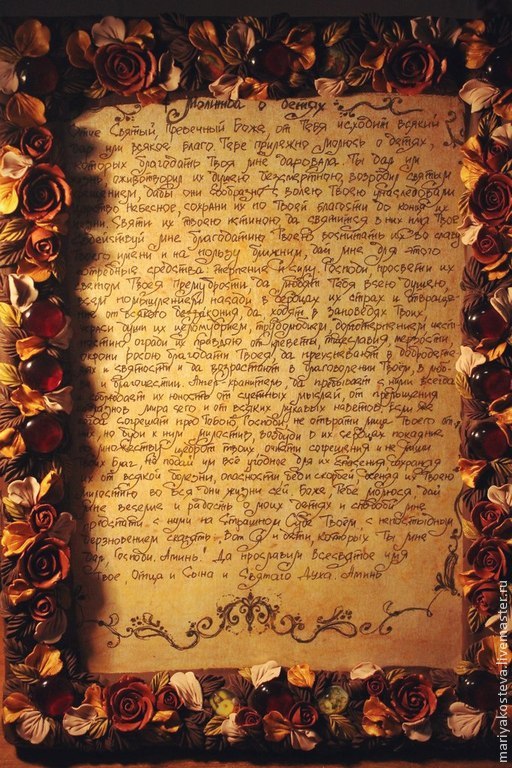 Молитва о детях
Святый, Превечный Боже, от Тебя исходит всякий
или всякое благо. Тебе прилежно молюсь о детях,
которых благодать Твоя мне даровала. Ты дар им
оживотворил их душею бессмертною, возродил святым
дабы они сообразно с волею Твоею унаследовали
Небесное, сохрани их по Твоей благости до конца их
Святи твоею истиною, да святится в них имя Твое
мне благодатию Твоею воспитать их во славу
имени и на пользу ближним, дай мне для этого
средства: терпение и силу. Господи просвети их
светом Твоей Премудрости, да любят Тебя всею душею,
помышлением, насади в сердцах их страх и отвраще-
от всякого беззакония, да ходят в заповедях Твоих
души их целомудрием, трудолюбием, долготерпением, чест-
огради их правдою от клеветы, тщеславия, мерзости,
росою благодати Твоей, да преуспевают в добродете-
и святости, да возрастают в благоволении Твоём, в люб-
и благочестии. Ангел-хранитель да пребывает с ними всегда
их юность от суетных мыслей, от прельщения
мира сего и от всяких лукавых наветов. Если же
согрешат пред Тобою Господи, не отврати лица Твоего от
но буди к ним милостив, возбуди в их сердцах покаяние
щедрот Твоих, очисти согрешения и не лиши
благ, но подай им всё угодное для их спасения, сохраняя
от всякой болезни, опасности, беды и скорбей, осеняя их Твоею
милостию во вся дни жизни сей. Боже, Тебе молюся, дай
мне веселие и радость о моих детях и сподоби мне
предстать с ними на Страшном Суде Твоём, с непостыдным
дерзновением сказать: Вот я и дети, которых Ты мне
дал, Господи. Аминь. Да прославим Всесвятое имя
Твое Отца и Сына и Святаго Духа. Аминь
mariyakosteva.livemaster.ru